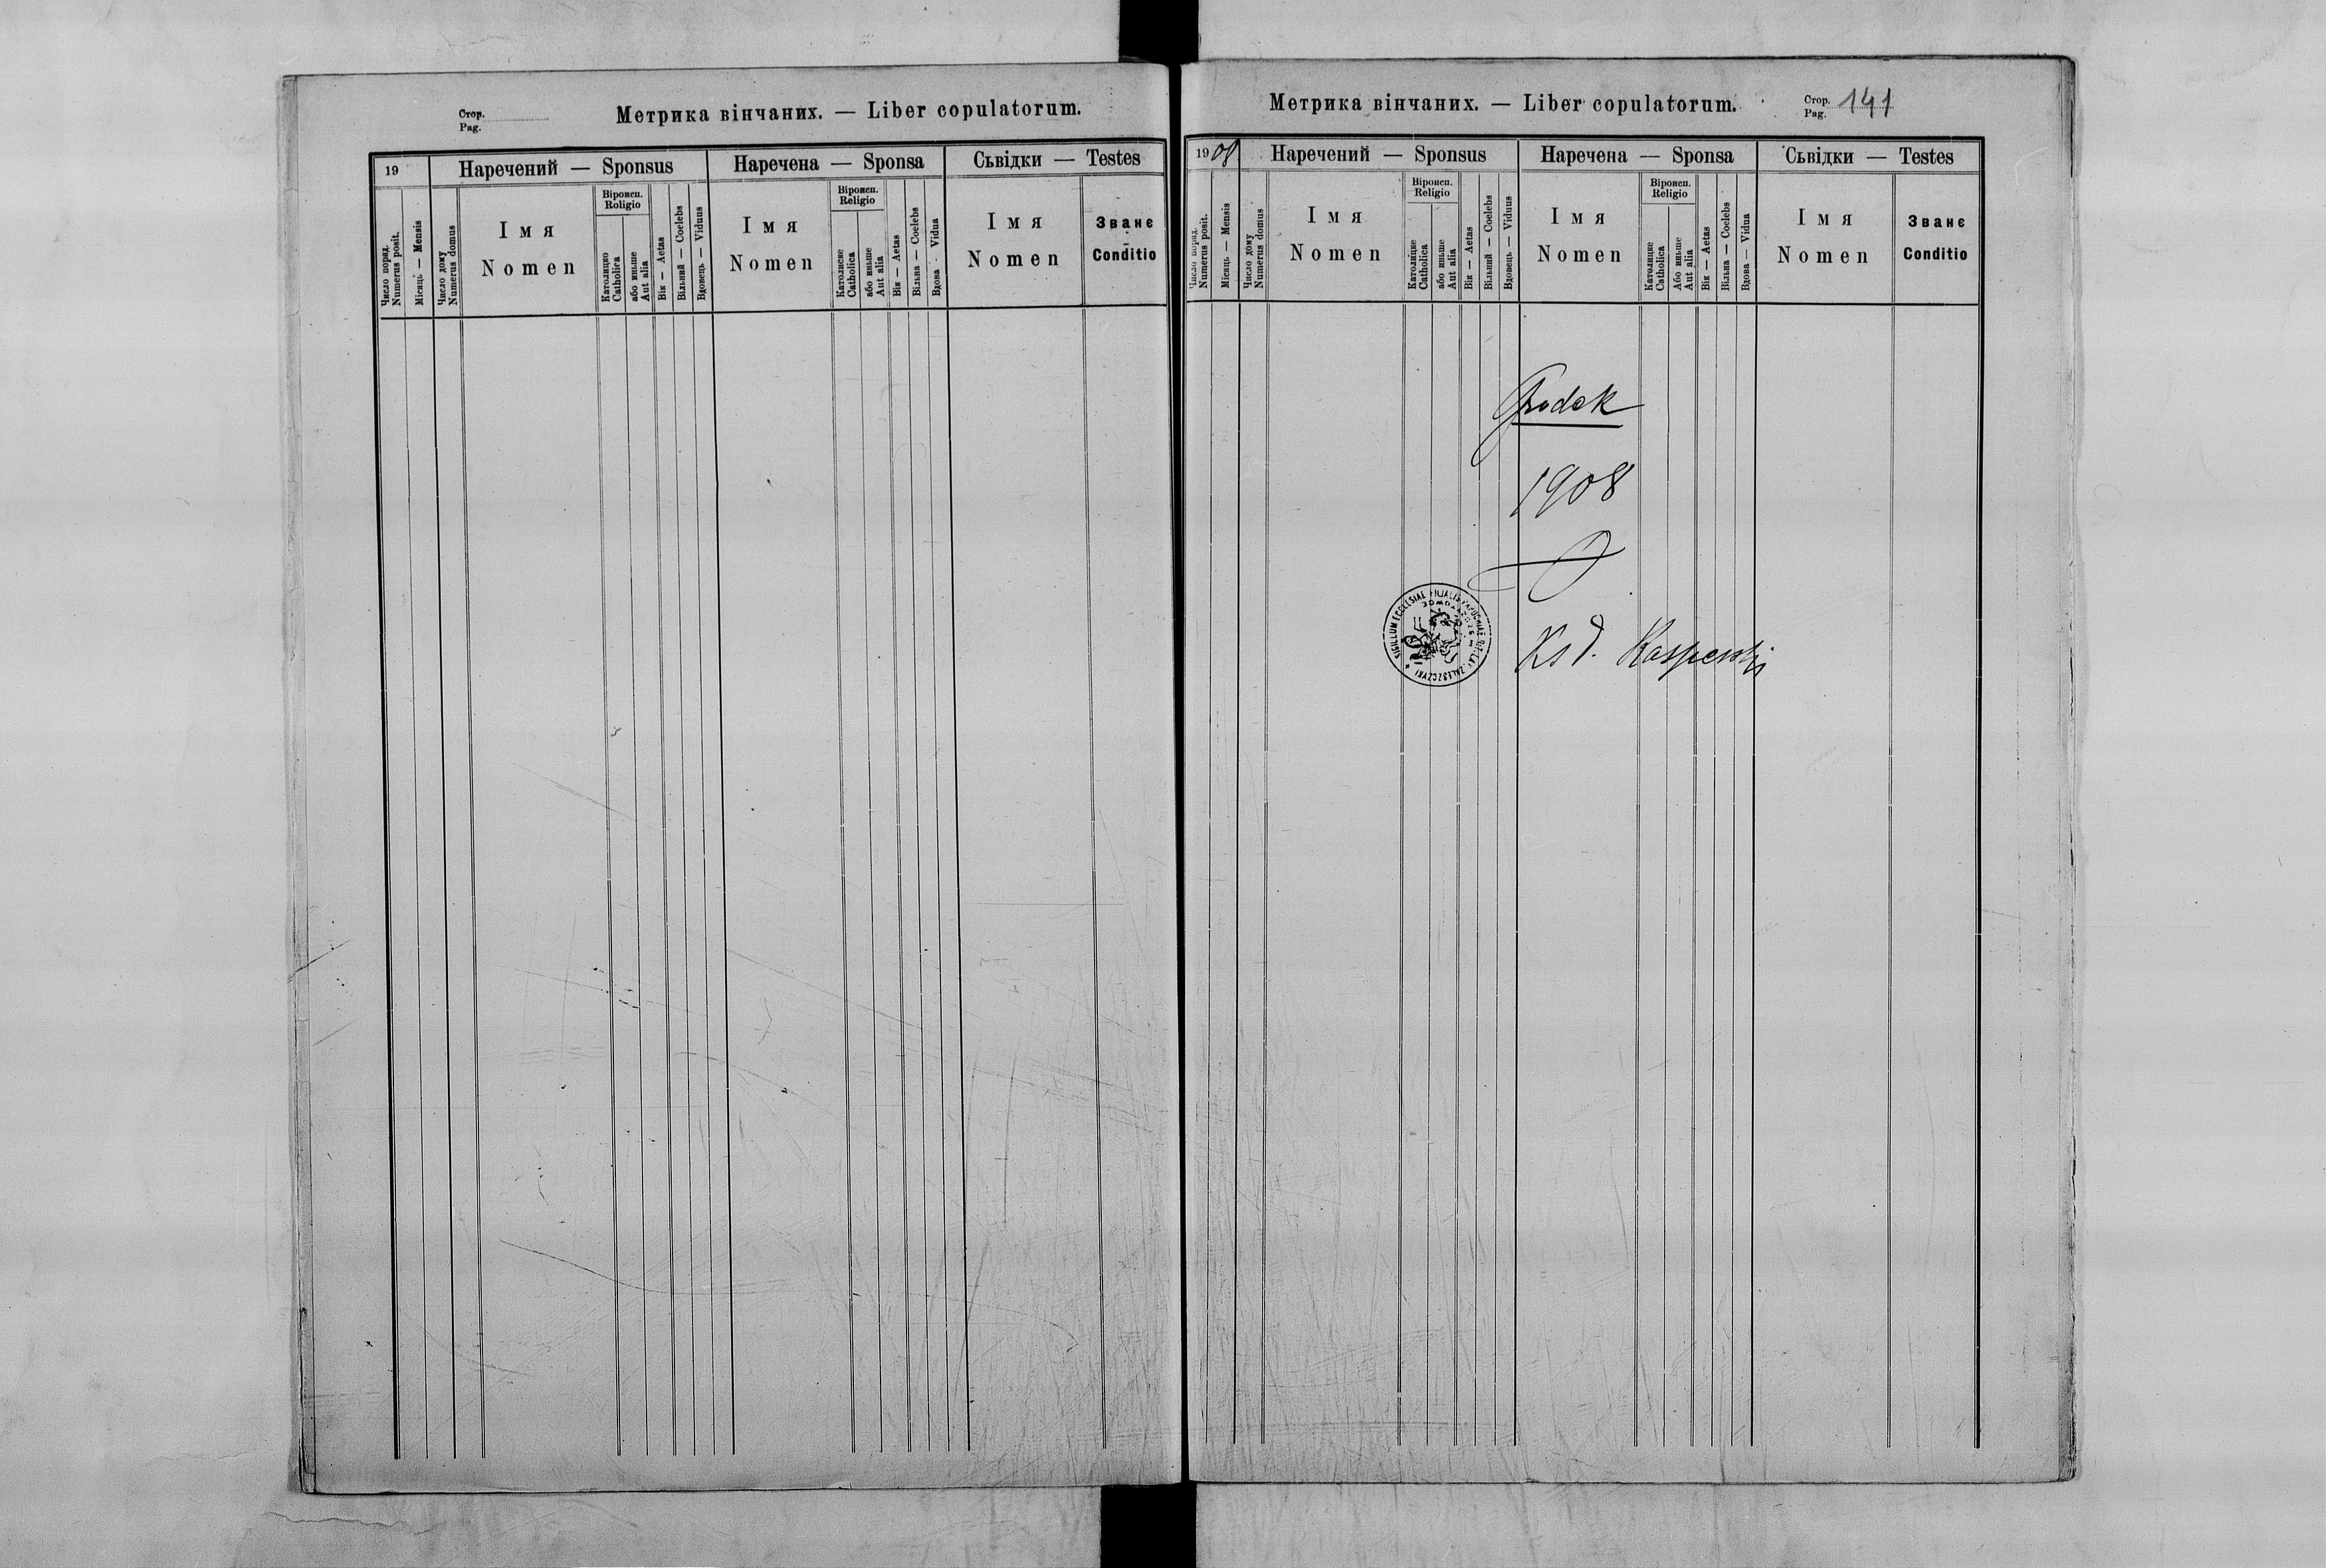 Стор.
Pag.
Метрика вінчаних. — Liber copulatorum.
19
Наречений — Sponsus
Наречена — Sponsa
Сьвідки — Testes
Число поряд.
Numerus posit.
Місяць — Mensis
Число дому
Numerus domus
Імя
Nomen
Віроисп.
Religio
Католицке
Catholica
або иньше
Aut alia
Вік — Aetas
Вільний — Coelebs
Вдовець — Viduus
Імя
Nomen
Віроисп.
Religio
Католиске
Catholica
або иньше
Aut alia
Вік — Aetas
Вільна — Coelebs
Вдова - Vidua
Імя
Nomen
Званє
Conditio
Метрика вінчаних. — Liber copulatorum.
Стор.
Pag. 141
1908
Наречений — Sponsus
Наречена — Sponsa
Сьвідки — Testes
Число поряд.
Numerus posit.
Місяць — Mensis
Число дому
Numerus domus
Імя
Nomen
Віроисп.
Religio
Католицке
Catholica
або иньше
Aut alia
Вік — Aetas
Вільний — Coelebs
Вдовець — Viduus
Імя
Nomen
Віроисп.
Religio
Католицке
Catholica
Або иньше
Aut alia
Вік — Aetas
Вільна — Coelebs
Вдова — Vidua
Імя
Nomen
Званє
Conditio
Grodek
1908
SIGILLUM ECCLESIAE FILIALIS ZALESZCZYKI
Ks J. Kasperski